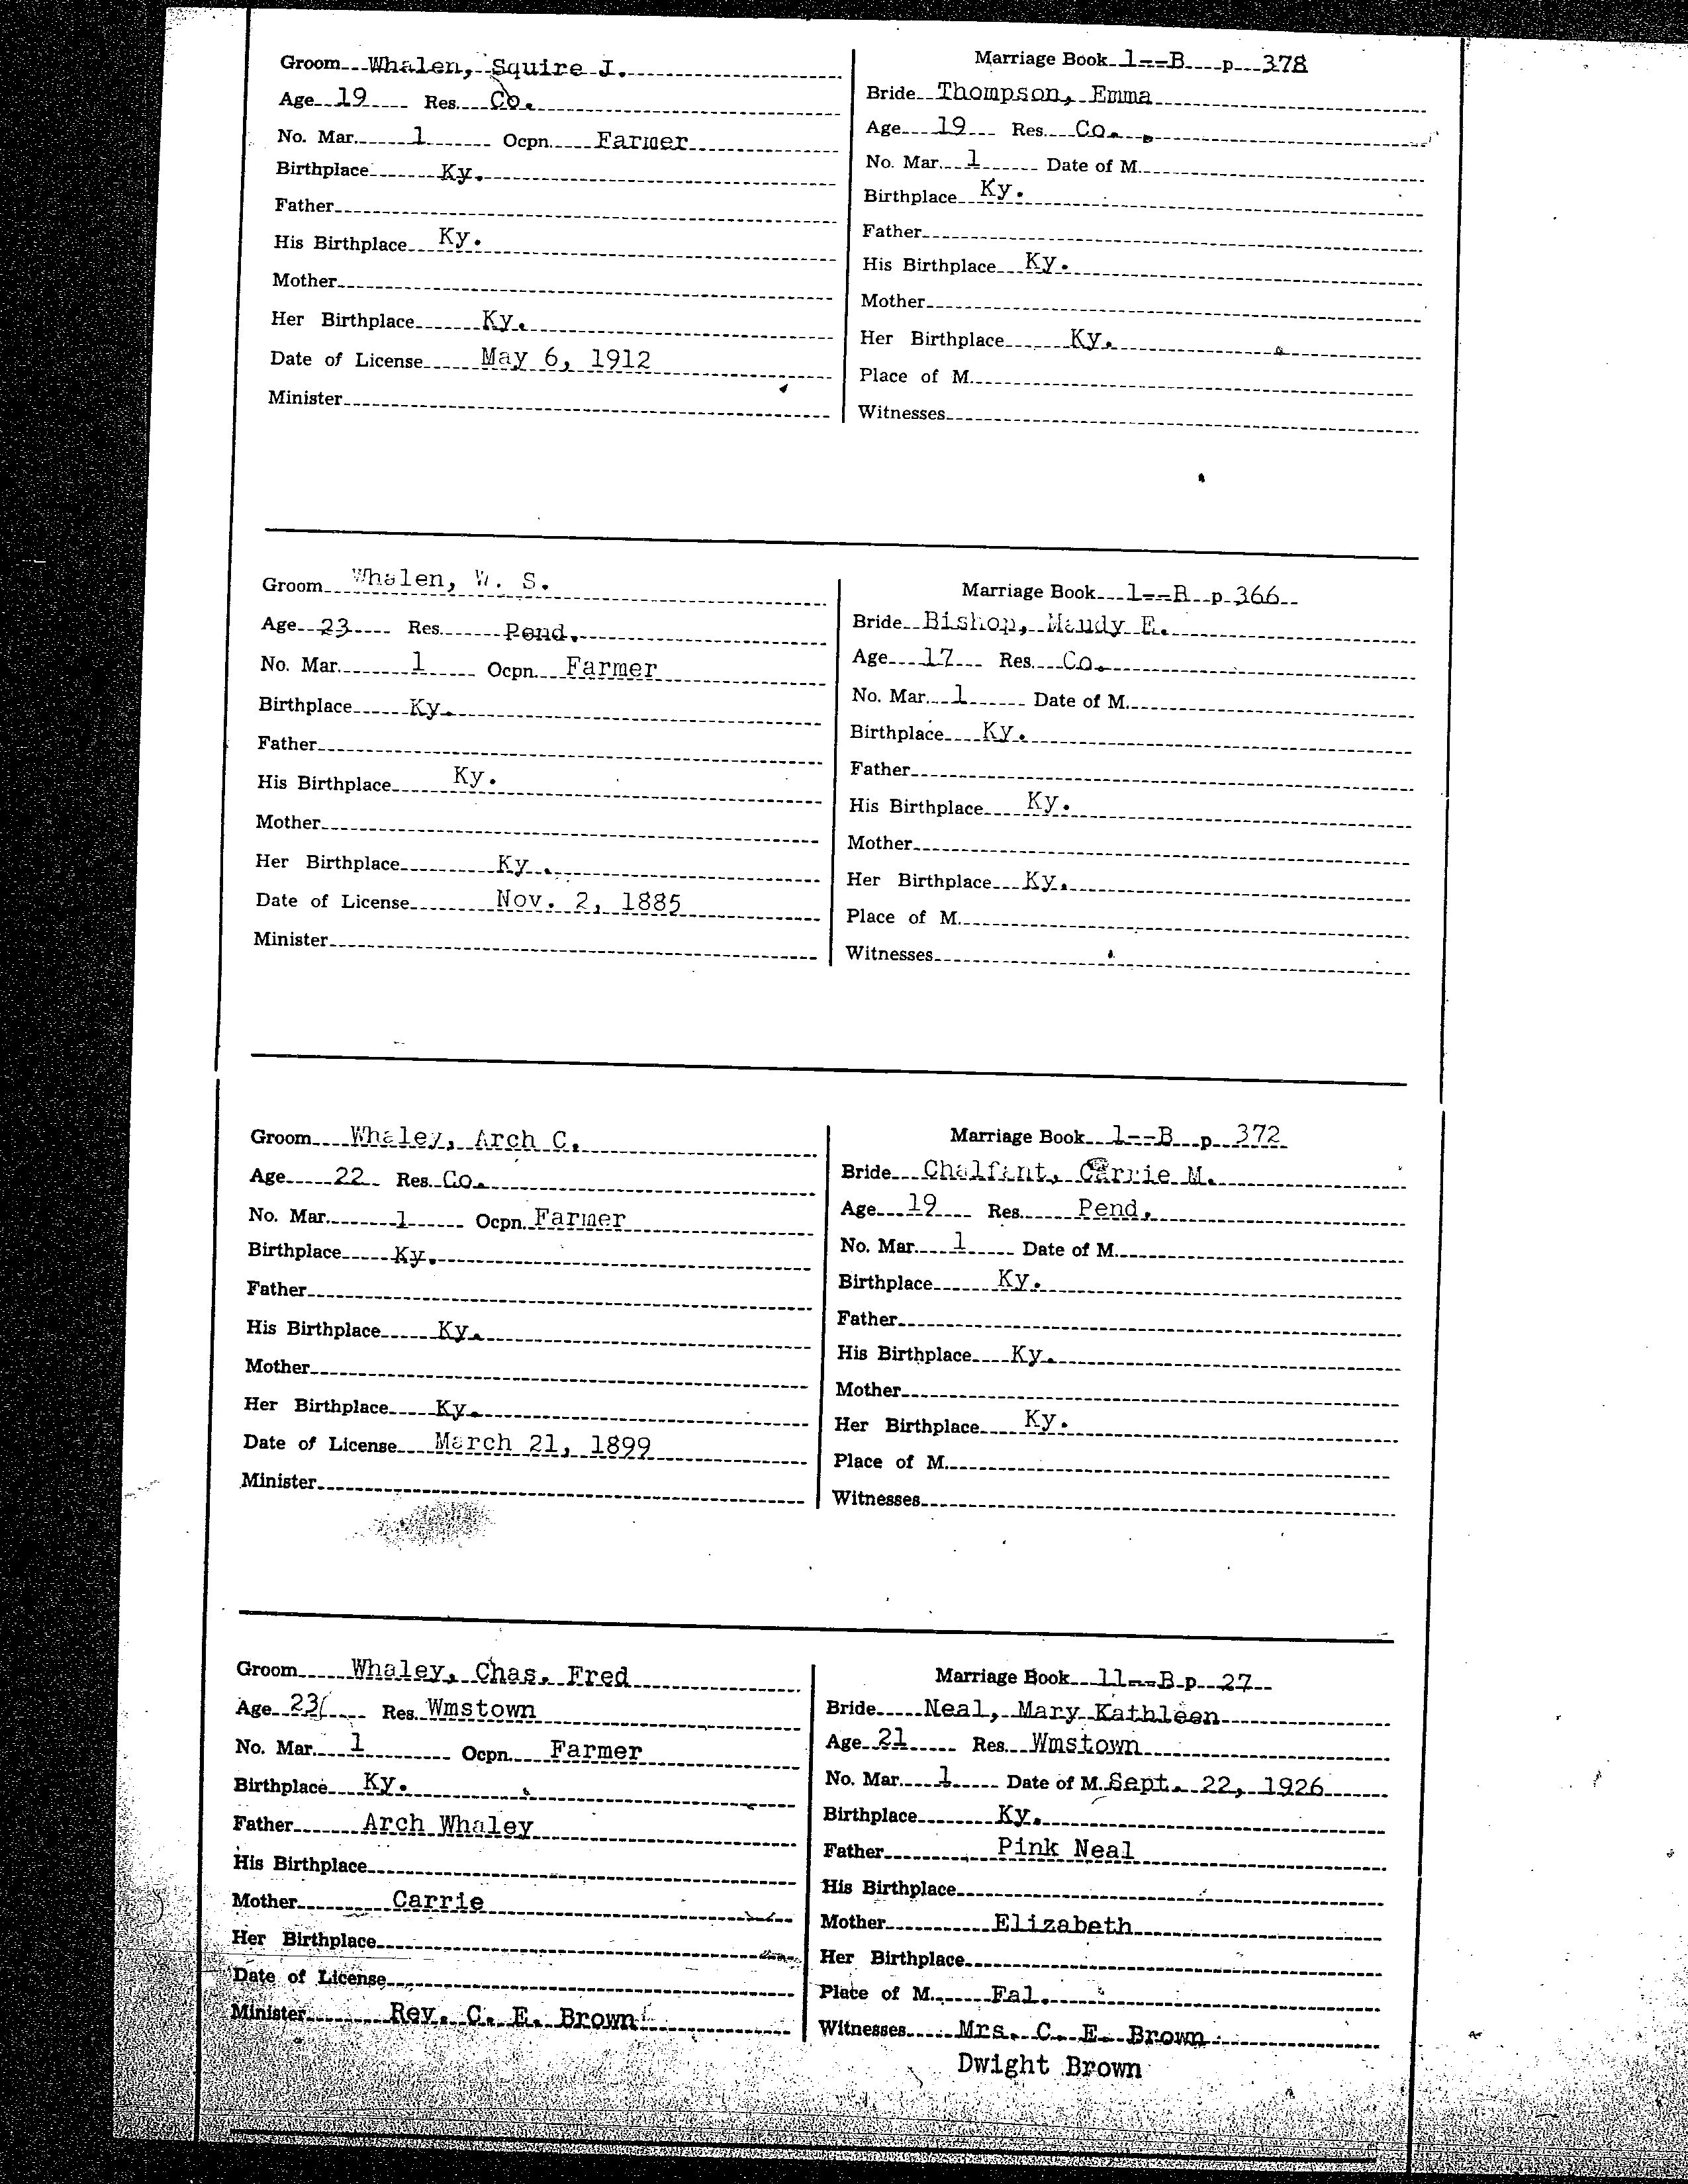 Groom Whalen, Squire J.
Age 19 Res. Co.
No. Mar. 1 Ocpn. Farmer
Birthplace Ky.
Father
His Birthplace Ky.
Mother
Her Birthplace Ky.
Date of License May 6, 1912
Minister
Marriage Book 1--B p 378
Bride Thompson, Emma
Age 19 Res. Co.
No. Mar. 1 Date of M.
Birthplace Ky.
Father
His Birthplace Ky.
Mother
Her Birthplace Ky.
Place of M.
Witnesses
Groom Whalen, W. S.
Age 23 Res. Pend.
No. Mar. 1 Ocpn. Farmer
Birthplace Ky.
Father
His Birthplace Ky.
Mother
Her Birthplace Ky.
Date of License Nov. 2, 1885
Minister
Marriage Book 1--B p 366
Bride Bishop, Maudy E.
Age 17 Res. Co.
No. Mar. 1 Date of M.
Birthplace Ky.
Father
His Birthplace Ky.
Mother
Her Birthplace Ky.
Place of M.
Witnesses
Groom Whaley, Arch C.
Age 22 Res. Co.
No. Mar. 1 Ocpn. Farmer
Birthplace Ky.
Father
His Birthplace Ky.
Mother
Her Birthplace Ky.
Date of License March 21, 1899
Minister
Marriage Book 1--B p 372
Bride Chalfant, Carrie M.
Age 19 Res. Pend.
No. Mar. 1 Date of M.
Birthplace Ky.
Father
His Birthplace Ky.
Mother
Her Birthplace Ky.
Place of M.
Witnesses
Groom Whaley, Chas. Fred
Age 23 Res. Wmstown
No. Mar. 1 Ocpn. Farmer
Birthplace Ky.
Father Arch Whaley
His Birthplace
Mother Carrie
Her Birthplace
Date of License
Minister Rev. C. E. Brown
Marriage Book 11--B p 27
Bride Neal, Mary Kathleen
Age 21 Res. Wmstown
No. Mar. 1 Date of M. Sept. 22, 1926
Birthplace Ky.
Father Pink Neal
His Birthplace
Mother Elizabeth
Her Birthplace
Place of M. Fal.
Witnesses Mrs. C. E. Brown
Dwight Brown